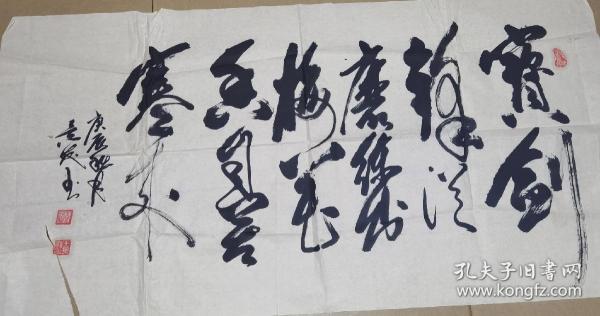 寶劍
鋒從
磨練出
梅花
香自苦
寒来
庚辰秋月
书
孔夫子旧书网
www.kongfz.com